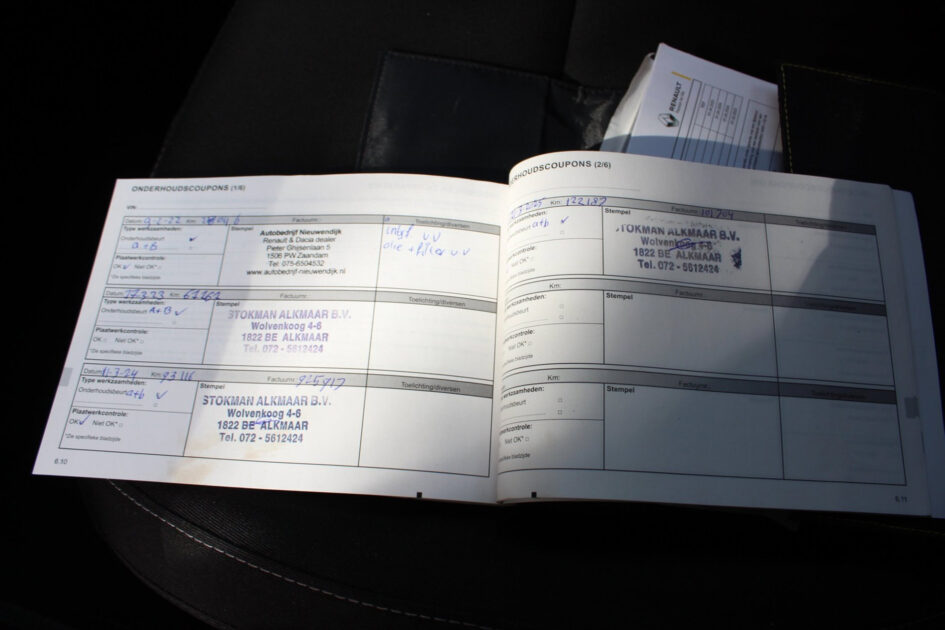 ONDERHOUDSCOUPONS (1/6)
VIN:
Datum: 9-2-22 Km: Factuurnr.: Toelichting/diversen
Type werkzaamheden:
Onderhoudsbeurt ✓
a+B
OK ✓ Niet OK* □
*Zie specifieke bladzijde
Stempel
Autobedrijf Nieuwendijk
Renault & Dacia dealer
Pieter Ghijsenlaan 5
1506 PW Zaandam
Tel: 075-6504532
www.autobedrijf-nieuwendijk.nl
olie + filter v v
Datum: Km: Factuurnr.: Toelichting/diversen
Type werkzaamheden:
Onderhoudsbeurt A+B ✓
Plaatwerkcontrole:
OK □ Niet OK* □
*Zie specifieke bladzijde
Stempel
STOKMAN ALKMAAR B.V.
Wolvenkoog 4-6
1822 BE ALKMAAR
Tel. 072 - 5612424
Datum: 11-3-24 Km: 93116 Factuurnr.: 925917 Toelichting/diversen
Type werkzaamheden:
Onderhoudsbeurt a+b ✓
Plaatwerkcontrole:
OK ✓ Niet OK* □
*Zie specifieke bladzijde
Stempel
STOKMAN ALKMAAR B.V.
Wolvenkoog 4-6
1822 BE ALKMAAR
Tel. 072 - 5612424
6.10
ONDERHOUDSCOUPONS (2/6)
2025 Km: 122187 Factuurnr.: 101704 Toelichting/diversen
werkzaamheden:
a+b ✓
werkcontrole:
Niet OK* □
specifieke bladzijde
Stempel
STOKMAN ALKMAAR B.V.
Wolvenkoog 4-6
1822 BE ALKMAAR
Tel. 072 - 5612424
Km: Factuurnr.: Toelichting/diversen
werkzaamheden:
Stempel
Niet OK* □
Km: Factuurnr.: Toelichting/diversen
werkzaamheden:
Stempel
Niet OK* □
specifieke bladzijde
6.11
RENAULT